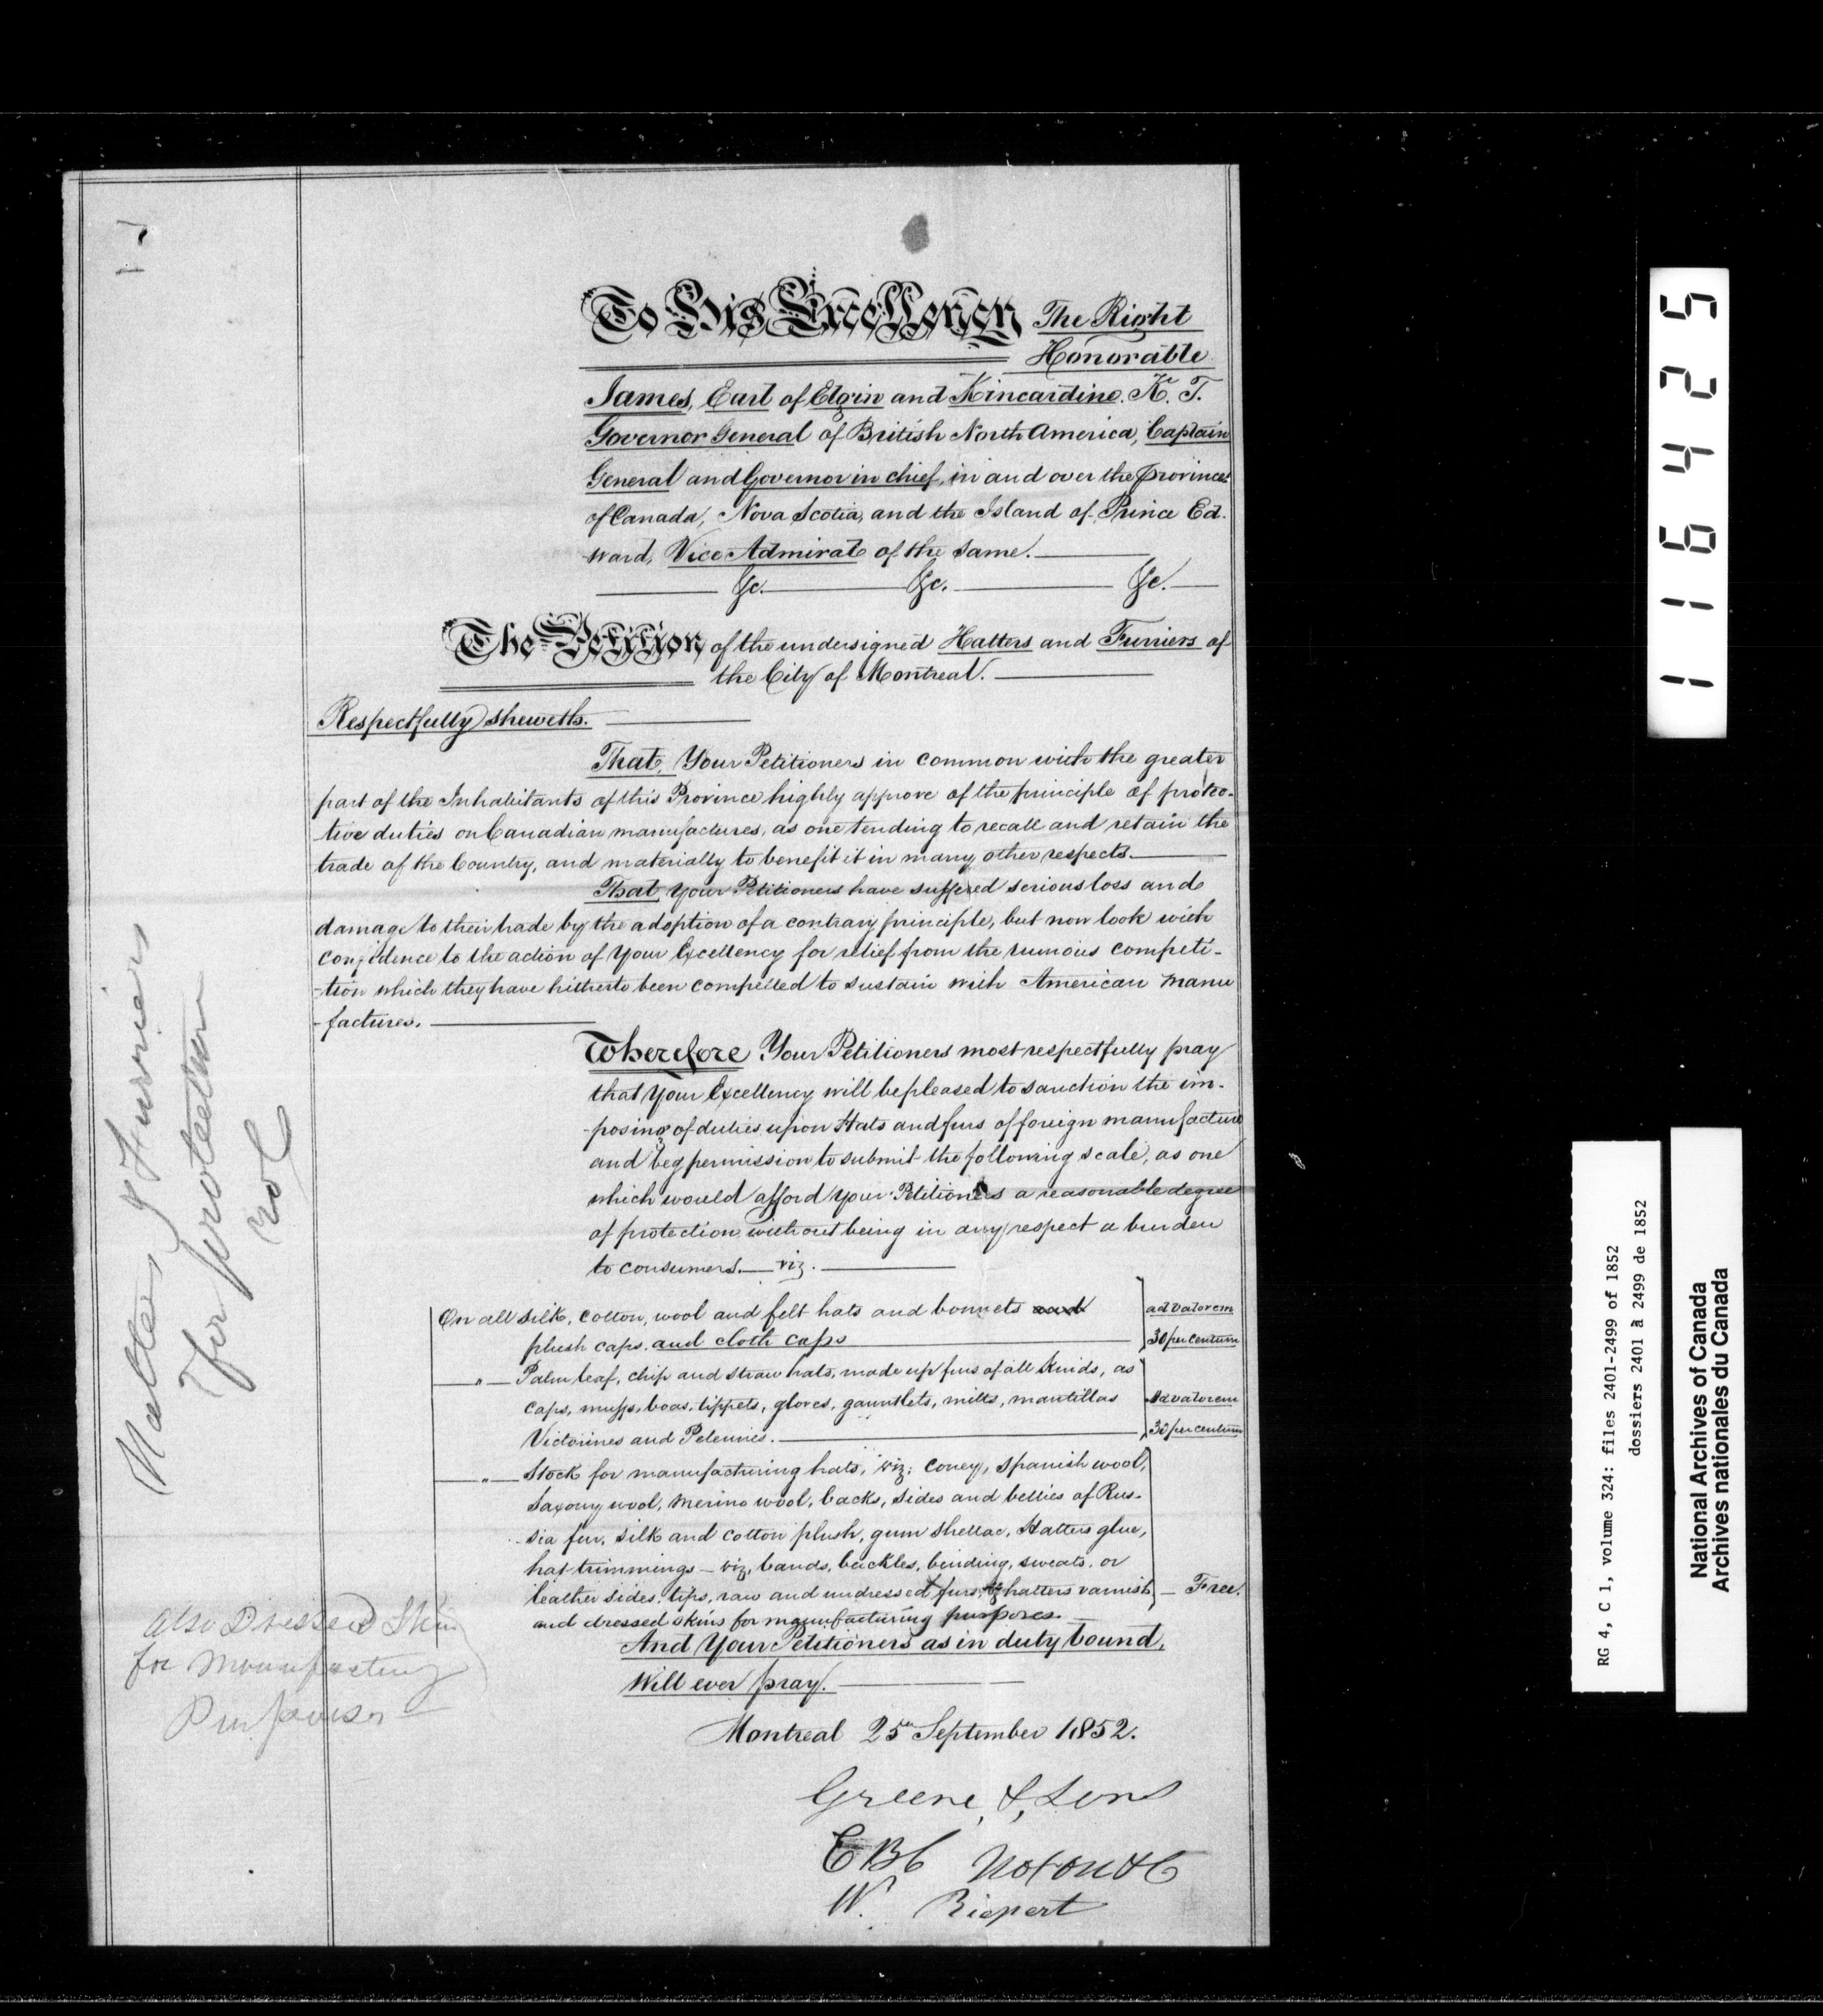 To His Excellency The Right
Honorable
James, Earl of Elgin and Kincardine. K. T.
Governor General of British North America, Captain
General and Governor in chief, in and over the Provinces
of Canada, Nova Scotia, and the Island of Prince Ed-
-ward, Vice Admiral of the same.
&c. &c. &c.
The Petition of the undersigned Hatters and Furriers of
the City of Montreal.
Respectfully sheweth.
That, Your Petitioners in common with the greater
part of the Inhabitants of this Province highly approve of the principle of protec-
tive duties on Canadian manufactures, as one tending to recall and retain the
trade of the Country, and materially to benefit it in many other respects.
That, Your Petitioners have suffered serious loss and
damage to their trade by the adoption of a contrary principle, but now look with
confidence to the action of Your Excellency for relief from the ruinous competi-
-tion which they have hitherto been compelled to sustain with American manu
-factures.
Wherefore Your Petitioners most respectfully pray
that Your Excellency will be pleased to sanction the im-
-posing of duties upon Hats and furs of foreign manufacture
and beg permission to submit the following scale, as one
which would afford your Petitioners a reasonable degree
of protection without being in any respect a burden
to consumers. viz.
On all silk, cotton, wool and felt hats and bonnets and
plush caps. and cloth caps
ad valorem
30 per centum
" Palm leaf, chip and straw hats, made up furs of all kinds, as
caps, muffs, boas, tippets, gloves, gauntlets, mitts, mantillas
Victorines and Pelerines.
Advalorem
30 per centum
" Stock for manufacturing hats, viz: Coney, Spanish wool,
Saxony wool, Merino wool, backs, sides and bellies of Rus-
-sia fur, silk and cotton plush, gum shellac, Hatters glue,
hat trimmings - viz. bands, buckles, binding, sweats, or
leather sides, tips, raw and undressed furs, hatters varnish - Free.
and dressed skins for manufacturing purposes.
And Your Petitioners as in duty bound,
Will ever pray.
Montreal 25th September 1852.
Greene & Sons
W.
Hatters & Furriers
for protection
Also Dressed Skins
for Manufacturing
Purposes
116425
RG 4, C 1, volume 324: files 2401-2499 of 1852
dossiers 2401 à 2499 de 1852
National Archives of Canada
Archives nationales du Canada